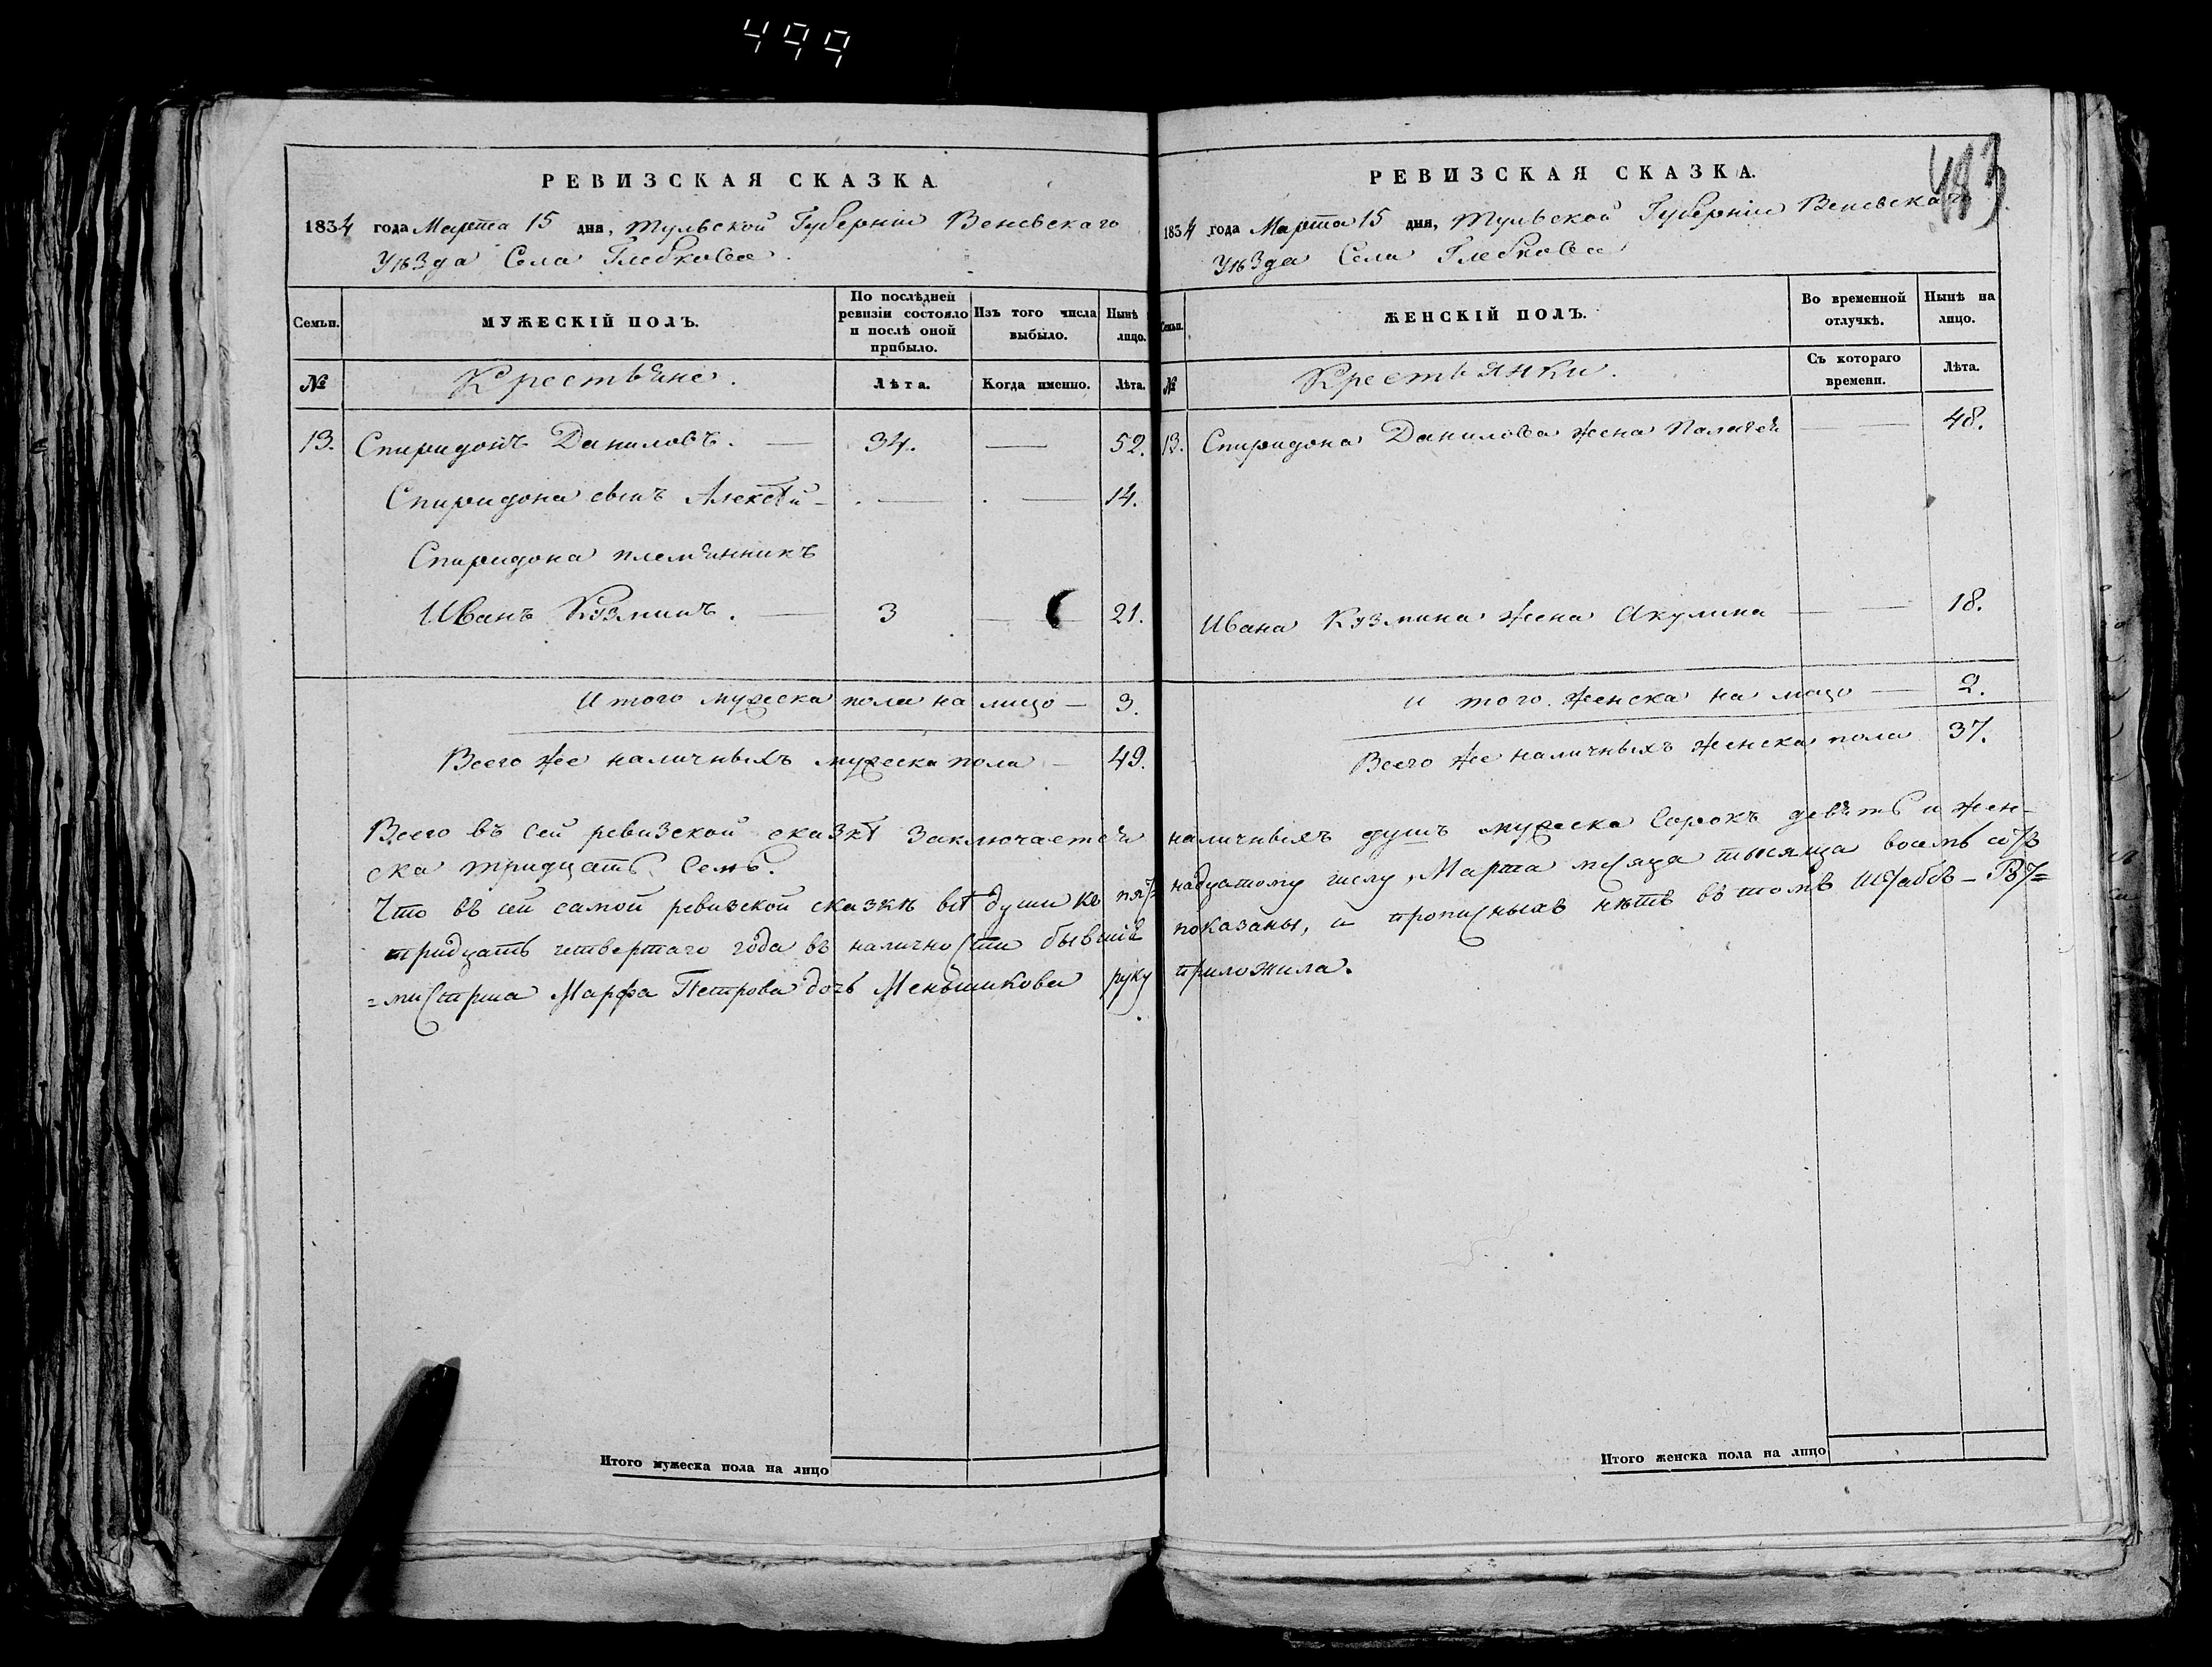 499
РЕВИЗСКАЯ СКАЗКА.
1834 года Марта 15 дня, Тульской Губерніи Веневскаго
Уѣзда Села Глебкова
Семьи.
МУЖЕСКІЙ ПОЛЪ.
По послѣдней ревизіи состояло и послѣ оной прибыло.
Изъ того числа выбыло.
Нынѣ лицо.
№
Крестьяне.
Лѣта.
Когда именно.
Лѣта.
13. Спиридонъ Даниловъ. — 34. — 52.
Спиридона сынъ Алексѣй — — — 14.
Спиридона племянникъ
Иванъ Кузминъ. — 3 — 21.
Итого мужеска пола на лицо — 3.
Всего же наличныхъ мужеска пола — 49.
РЕВИЗСКАЯ СКАЗКА.
483
1834 года Марта 15 дня, Тульской Губерніи Веневскаго
Уѣзда Села Глебкова
Семьи.
ЖЕНСКІЙ ПОЛЪ.
Во временной отлучкѣ.
Нынѣ на лицо.
№
Крестьянки.
Съ котораго времени.
Лѣта.
13. Спиридона Данилова жена Палагея — — 48.
Ивана Кузмина жена Акулина — — 18.
и того женска на лицо — 2.
Всего же наличныхъ женска пола 37.
Всего въ сей ревизской сказкѣ заключается наличныхъ душъ мужеска сорокъ девять и жен-
ска тридцать семь.
Что въ сей самой ревизской сказкѣ всѣ души ко пят= надцатому числу, Марта месяца тысяща восемь сотъ
тридцать четвертаго года въ наличности бывшіе показаны, и прописныхъ нѣтъ въ томъ Штабсъ-Рот=
=мистрша Марфа Петрова дочь Меньшикова руку приложила.
Итого мужеска пола на лицо
Итого женска пола на лицо